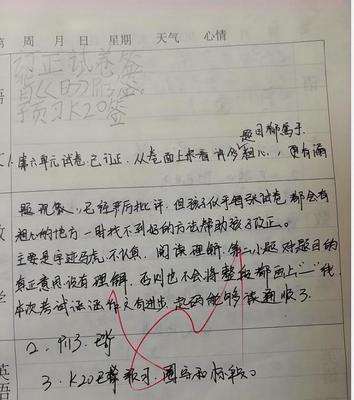 周 月 日 星期 天气 心情
订正试卷签
预习K20签
语
题目都属于
1.第六单元试卷已订正,从卷面上来看许多粗心,更有漏
题现象,已经严厉批评,但孩子似乎每张试卷都会有
粗心的地方一时找不到好的方法帮助孩子改正。
主要是字迹马虎,不认真,阅读理解,第二小题对题目的
真正意思没有理解,否则也不会将整段都画上“﹏”线
本次考试语语作文有进步,起码能够读通顺了
数
学
2. 9113.
3. K20已预习,圈写和标段。
英
语